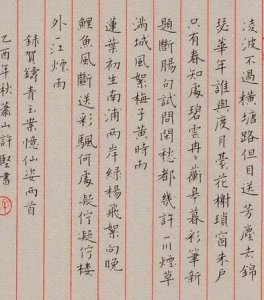 凌波不過橫塘路但目送芳塵去錦
瑟華年誰與度月臺花榭瑣窗朱戶
只有春知處碧雲冉冉蘅皋暮彩筆新
題斷腸句試問閒愁都幾許一川煙草
滿城風絮梅子黃時雨
蓮葉初生南浦兩岸綠楊飛絮向晚
鯉魚風斷送彩颿何處凝佇凝佇樓
外一江煙雨
錄賀鑄青玉案憶仙姿兩首
乙酉年秋蕭山許書